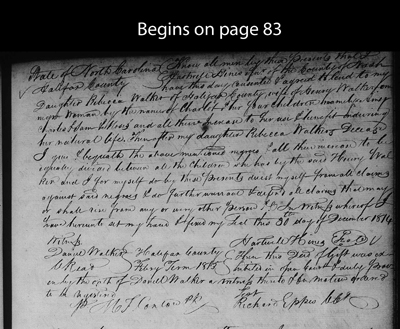 Begins on page 83
State of North Carolina Know all men by these Presents that I
Halifax County Hartwell Hines of the County of Nash
have this day consented & agreed to lend to my
Daughter Rebecca Walker of Halifax County wife of Henry Walker one
negro Woman by the name of Charlot & her four children namely
Charles Sam & and all their increase to her use & benefit during
her natural life, then after my daughter Rebecca Walkers Decease
I give & bequeath the above mentioned negroes & all their increase to be
equally divided between all the Children she has by the said Henry Wal
ker and I for myself do by these Presents divest myself from all claims
against said negroes & do further warrant & defend all claims that may
or shall rise from any or every other person &c. In witness whereof I
have hereunto set my hand & fixed my Seal this 30 day of December 1814
Witness Hartwell Hines Seal
Daniel Walker Halifax County Then this Deed of Gift was ex
Feby Term 1815 hibited in Open Court & duly prov
en by the oath of Daniel Walker a witness thereto & on motion ordered
to be registered
Richard Eppes